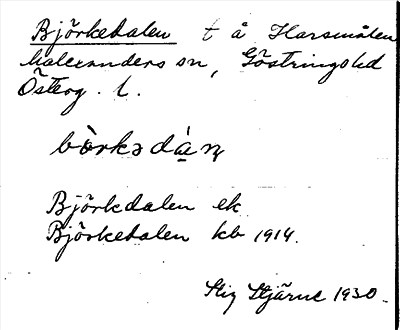 Björkedalen t å Harsmålen
Malexanders sn, Göstrings hd
Östog. l.
bö̀rkədàṇ
Björkdalen ek
Björkedalen kb 1914.
Stig Stjärne 1930.